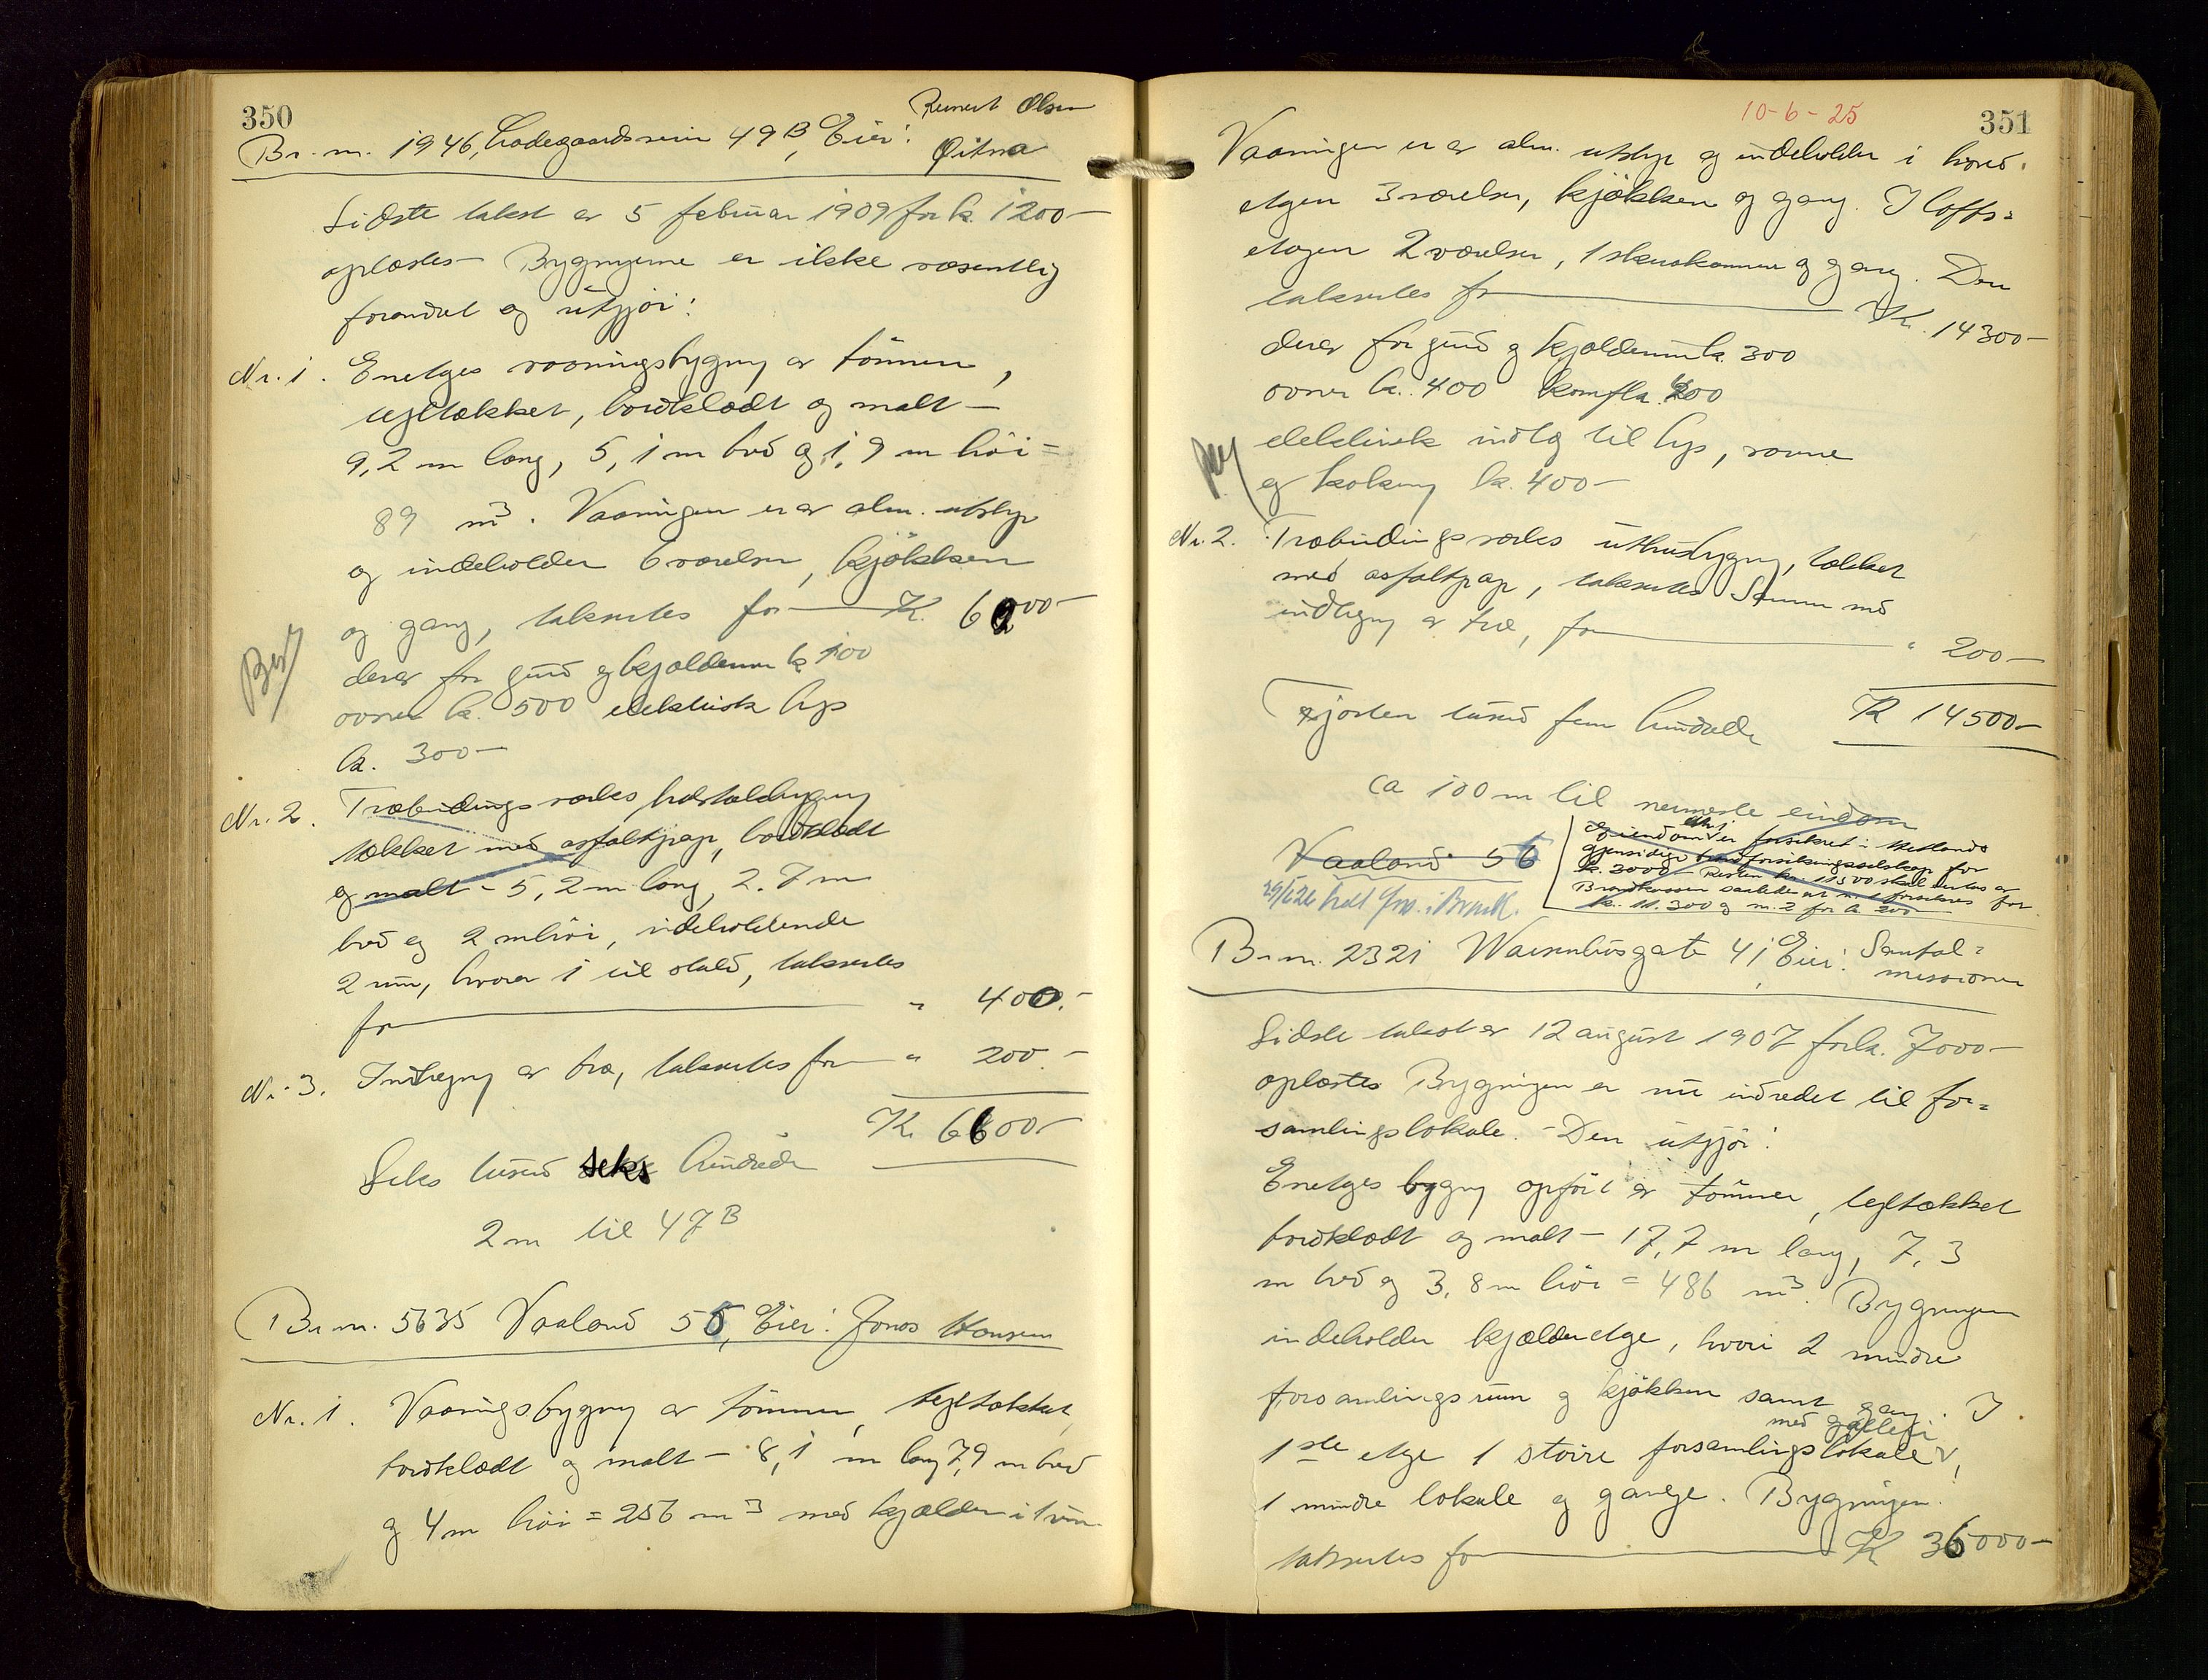 350
Br. nr. 1946, Ladegaardsveien 49 B, Eier: Reinert Olsen
Qitna
Sidste takst er 5 februar 1909 for k. 1200-
oplæstes - Bygningerne er ikke væsentlig
forandret og utgjør:
Nr. 1. Enetages vaaningsbygning av tømmer,
tegltækket, bordklædt og malt -
9,2 m lang, 5,1 m bred og 1,9 m høi =
89 m³. Vaaningen er av alm. utstyr
og indeholder 6 værelser, kjøkken
og gang, taksertes for K. 6000-
derav for grund og kjælderrum k 100
ovner k. 500 elektrisk lys
k. 300-
Nr. 2. Træbindingsverks hestaldbygning
tækket med asfaltpap, bordklædt
og malt - 5,2 m lang, 2.7 m
bred og 2 m høi, indeholdende
2 rum, hvorav 1 til stald, taksertes
for " 400.-
Nr. 3. Indhegning av træ, taksertes for " 200.-
K. 6600-
Seks tusind seks hundrede
2 m til 47 B
Br. nr. 5635 Vaaland 56, Eier: Jonas Hansen
Nr. 1. Vaaningsbygning av tømmer, tegltækket,
bordklædt og malt - 8,1 m lang 7,9 m bred
og 4 m høi = 256 m³ med kjælder i 1 rum.
10-6-25
351
Vaaningen er av alm. utstyr og indeholder i hoved-
etagen 3 værelser, kjøkken og gang. I lofts=
etagen 2 værelser, 1 skraakammer og gang. Den
taksertes for K. 14300-
derav for grund og kjælderrum k. 300
ovner k. 400 komfyr k. 200
elektrisk indlæg til lys, varme
og kokning k. 400-
Nr. 2. Træbindingsverks uthusbygning, tækket
med asfaltpap, taksertes sammen med
indhegning av træ, for " 200-
Fjorten tusind fem hundrede K 14500-
ca 100 m til nærmeste eiendom
Vaaland 56
Eiendommen er forsikret i Hetlands
gjensidige brandforsikringsselskap for
k. 3000- Resten kr. 11500 skal sættes av
Brandkassen saaledes at nr. 1 forsikres for
k. 11.300 og nr. 2 for k. 200-
Br. nr. 2321 Waisenhusgate 41, Eier: Santal=
missionen
Sidste takst er 12 august 1907 for k. 7000-
oplæstes Bygningen er nu indredet til for=
samlingslokale. - Den utgjør:
Enetages bygning opført av tømmer, tegltækket
bordklædt og malt - 17,7 m lang, 7,3
m bred og 3,8 m høi = 486 m³. Bygningen
indeholder kjælderetage, hvori 2 mindre
forsamlingsrum og kjøkken samt gang. I
1ste etage 1 større forsamlingslokale med galleri,
1 mindre lokale og gange. Bygningen
taksertes for K 36000-